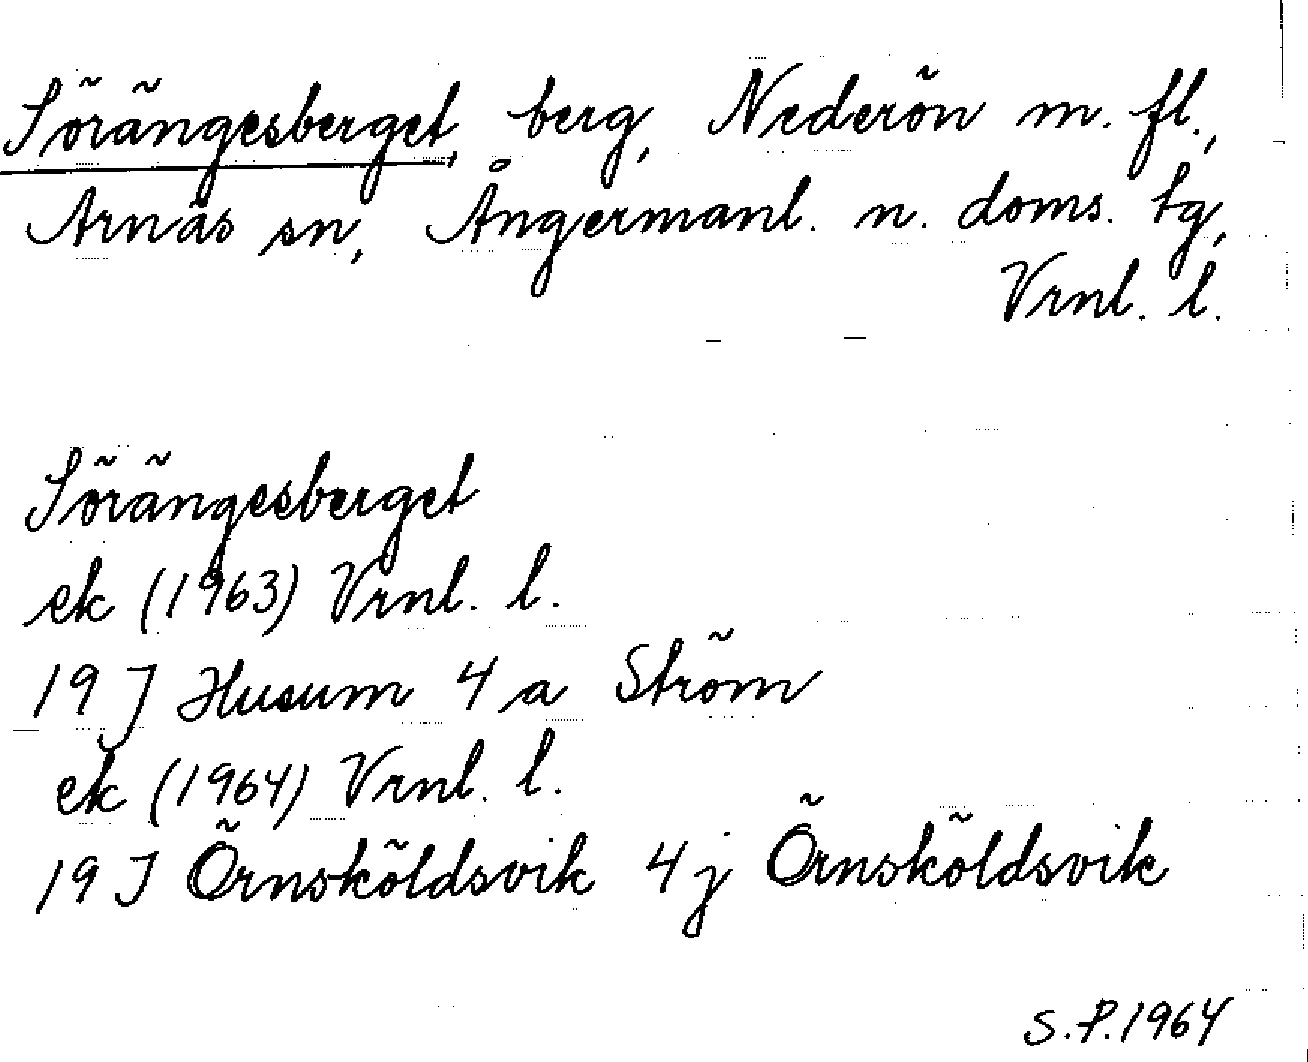 Sörängesberget, berg, Nederön m. fl.,
Arnäs sn, Ångermanl. n. doms. tg,
Vrnl. l.
Sörängesberget
ek (1963) Vrnl. l.
19 J Husum 4 a Ström
ek (1964) Vrnl. l.
19 J Örnsköldsvik 4 j Örnsköldsvik
S.P.1964